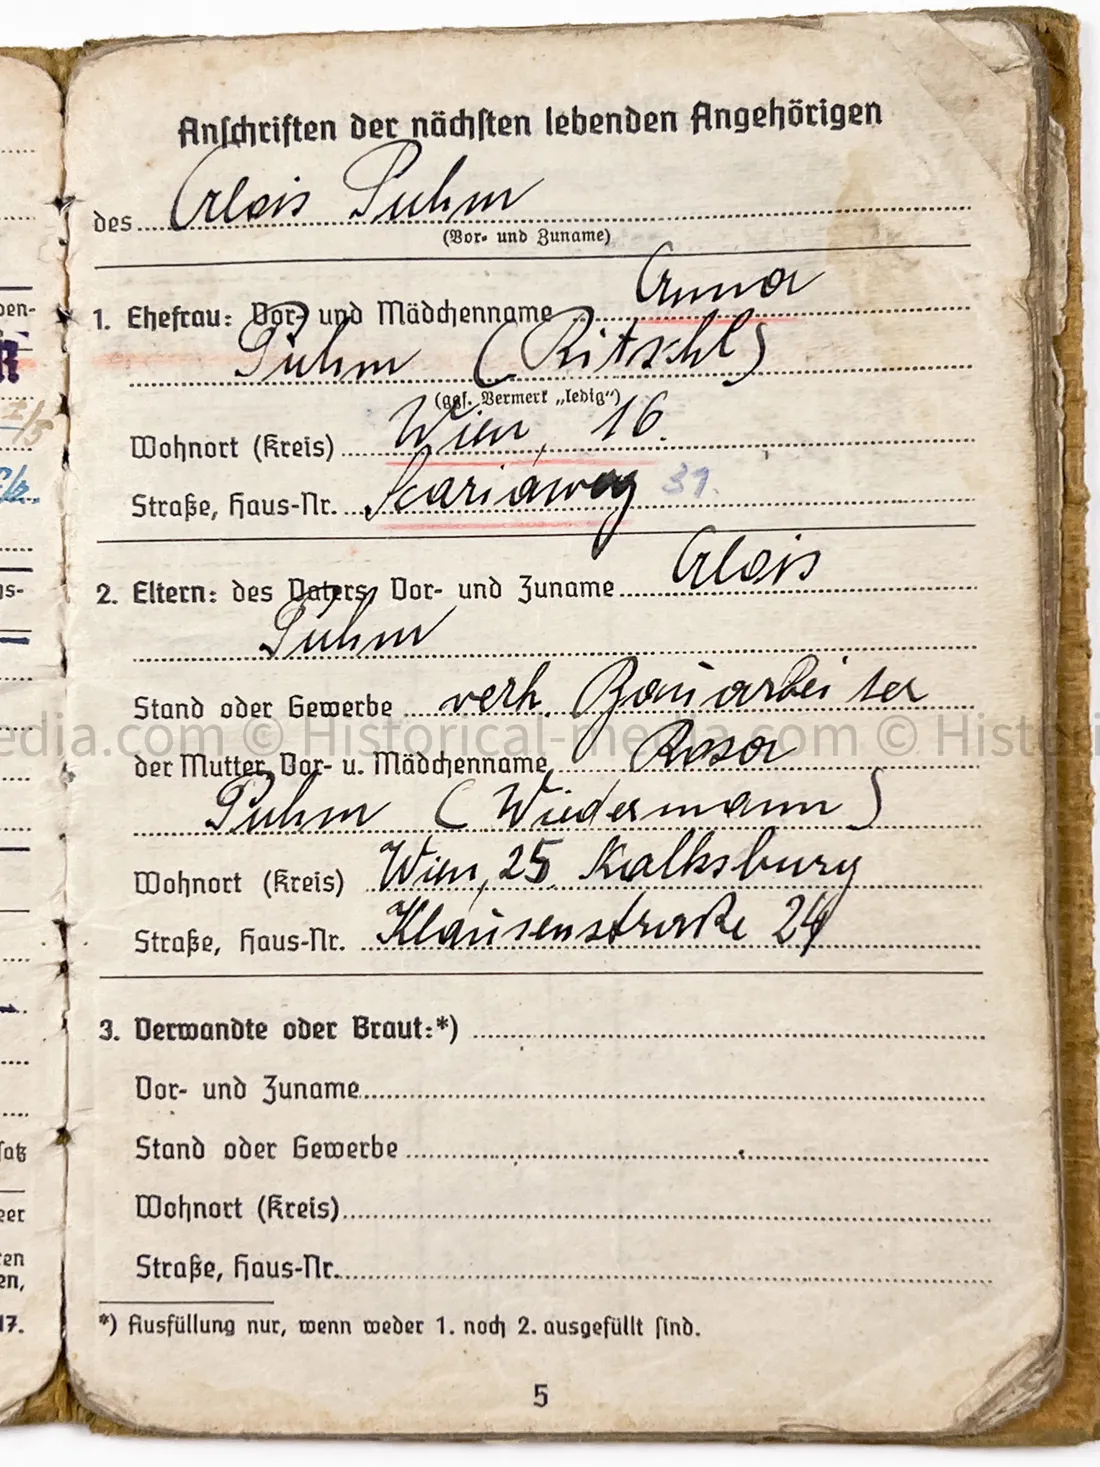 Anschriften der nächsten lebenden Angehörigen
des Alois Puhm
(Vor- und Zuname)
1. Ehefrau: Vor- und Mädchenname Anna
Puhm (Ritschl)
(ggf. Vermerk „ledig“)
Wohnort (Kreis) Wien, 16.
Straße, Haus-Nr. 31.
2. Eltern: des Vaters, Vor- und Zuname Alois
Puhm
Stand oder Gewerbe verh. Bauarbeiter
der Mutter, Vor- u. Mädchenname Rosa
Puhm (Wiedermann)
Wohnort (Kreis) Wien, 25 Kalksburg
Straße, Haus-Nr. Klausenstraße 24
3. Verwandte oder Braut:*)
Vor- und Zuname
Stand oder Gewerbe
Wohnort (Kreis)
Straße, Haus-Nr.
*) Ausfüllung nur, wenn weder 1. noch 2. ausgefüllt sind.
5
edia.com © Historical-media.com © Histori